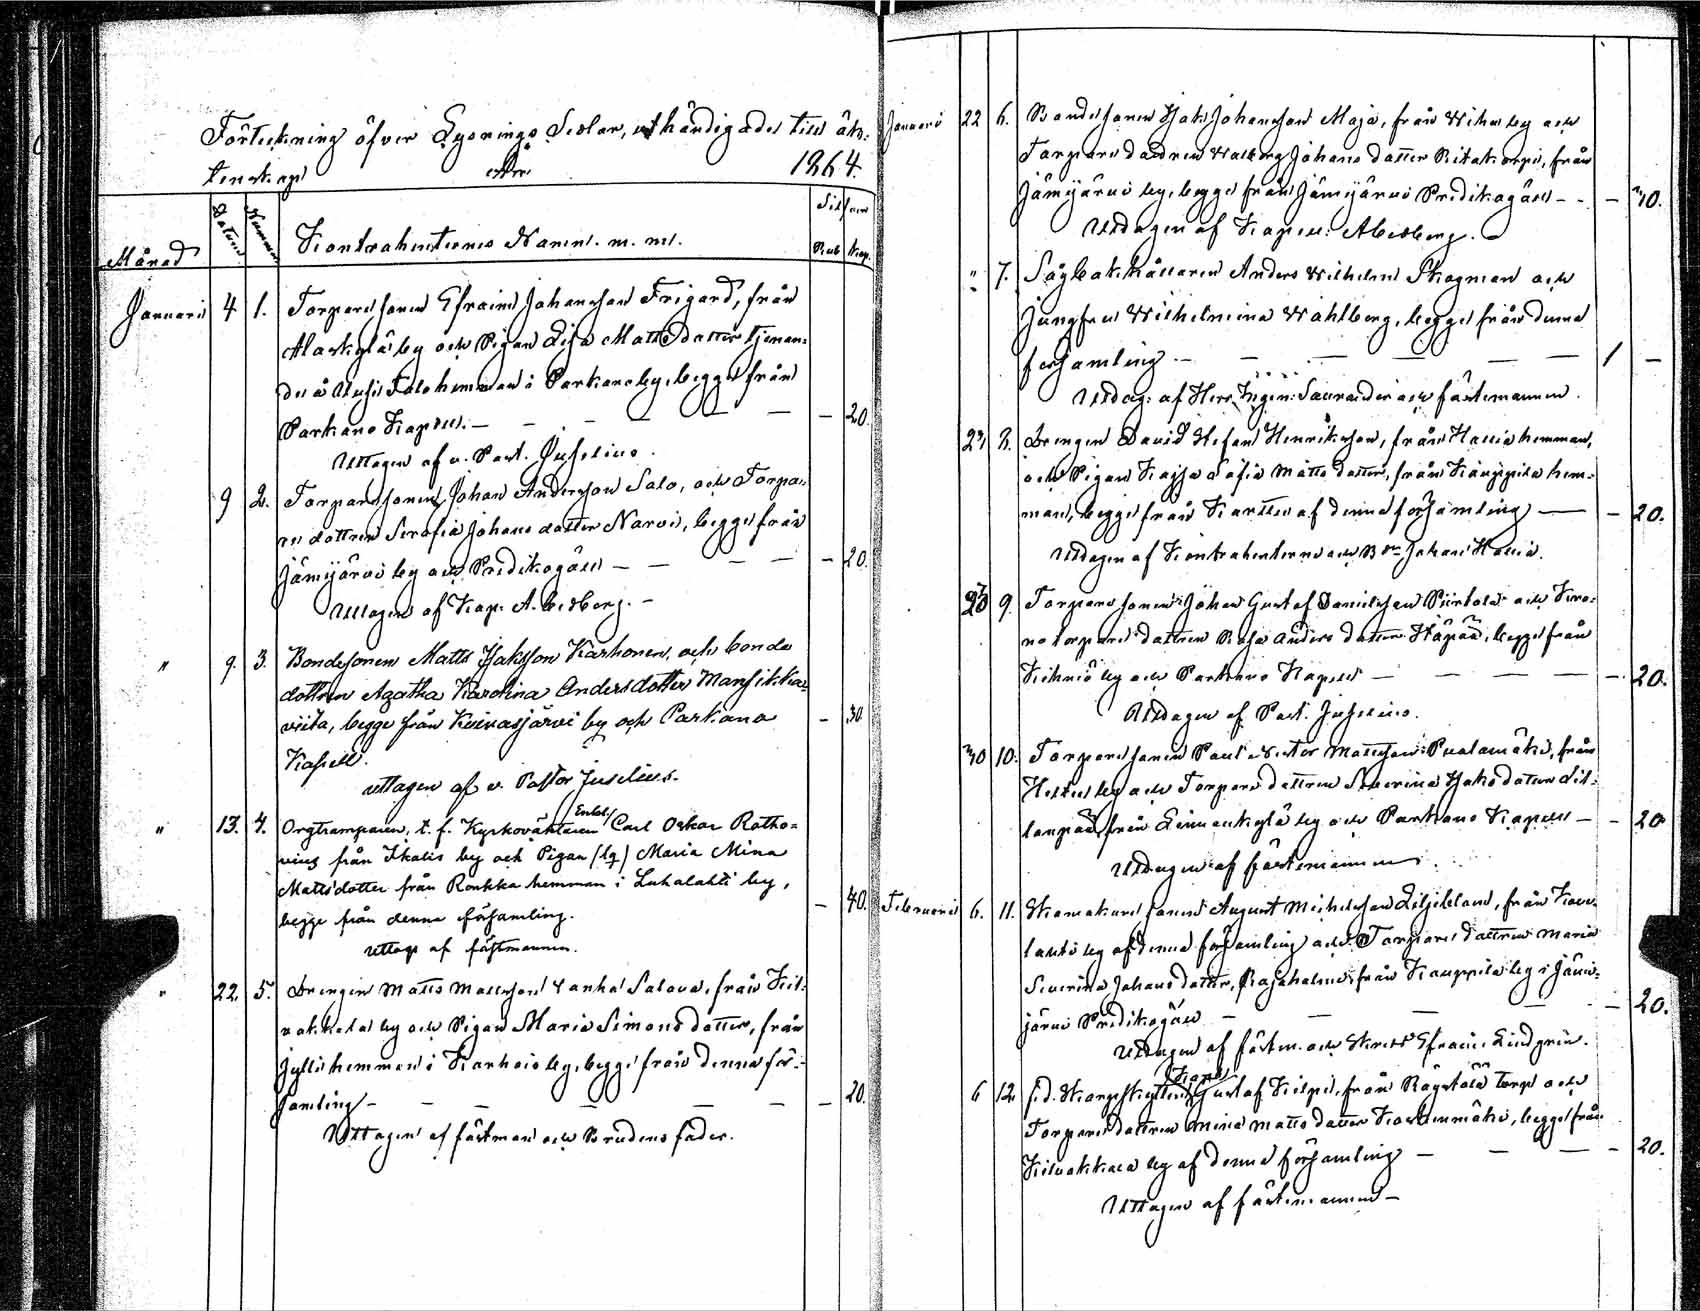 Förteckning öfver Lysnings Sedlar, uthändigade till äk-
tenskap 1864.
Månad Datum Nummer Kontrahenternes Namn. m. m. Silfver
Rub Kop.
Januari 4 1. Torparesonen Efraim Johansson Frigard, från
Alaskylä by och Pigan Lisa Mattsdotter tjenan-
de å Salo hemman i Parkano by, begge från
Parkano Kapell. — 20.
Uttagen af v. Past. Juselius.
9 2. Torparesonen Johan Andersson Salo, och Torpa-
re dottren Serafia Johans dotter Narvi, begge från
Jämijärvi by och Predikogäll — 20.
Uttagen af Kap: A. Cedberg.
" 9. 3. Bondesonen Matts Isaksson Karhonen, och bonde
dottren Agatha Karolina Andersdotter Mansikka-
viita, begge från Kuivasjärvi by och Parkano — 30
Kapell.
uttagen af v. Pastor Juselius.
" 13. 4. Orgtramparen, t. f. Kyrkoväktaren Enkl. Carl Oskar Ratho-
vius från Ikalis by och Pigan (lg) Maria Mina
Mattsdotter från Ronkka hemman i Luhalahti by,
begge från denna församling. — 40.
uttage af fästmannen.
" 22. 5. Drengen Matts Mattsson Salova, från Kil-
vakkala by och Pigan Maria Simons dotter, från
Jylli hemman i Karhois by, begge från denna för-
samling — 20.
Uttagen af fästman och Brudens fader.
Januari 22 6. Bondesonen Isak Johansson Maja, från by och
Torpare dottren Walborg Johans dotter Ritakorpi, från
Jämijärvi by, begge från Jämijärvi Predikogäll — 30.
Uttagen af Kapell: A Cedberg.
" 7. Sågbokhållaren Anders Wilhelm Skogman och
Jungfru Wilhelmina Wahlberg, begge från denna
församling — 1 —
Uttag: af Herr Ingen: och fästemannen.
23 8. Drengen David Stefan Henriksson, från hemman,
och Pigan Kajsa Sofia Matts dotter, från Kauppila hem-
man, begge från af denna församling — 20.
Uttagen af Kontrahenterne och Johan
23 9. Torpare sonen Johan Gustaf Danielsson Piirtola och Kro-
no torpare dottren Anders dotter Häpää, begge från
Kihniö by och Parkano Kapell — 20.
Uttagen af Past. Juselius.
30 10. Torparesonen Paul Victor Mattsson från
by och Torpare dottren Severina Isaks dotter Lil-
lanpää, från Linnankylä by och Parkano Kapell — 20
Uttagen af fästemannen.
Februari 6. 11. Skomakare sonen August Michelsson Liljeblad, från
by af denna församling och Torpare dottren Maria
Severina Johans dotter, Rajahalme från Kauppila by i Jämi-
järvi Predikogäll — 20.
Uttagen af fästm. och Skredd. Efraim Lindgrén.
6 12. f.d. Skarpskytten Karl Gustaf Kilpi, från torp och
Torpare dottren Mina Matts dotter begge från
Kilvakkala by af denna församling — 20.
Uttagen af fästemannen —